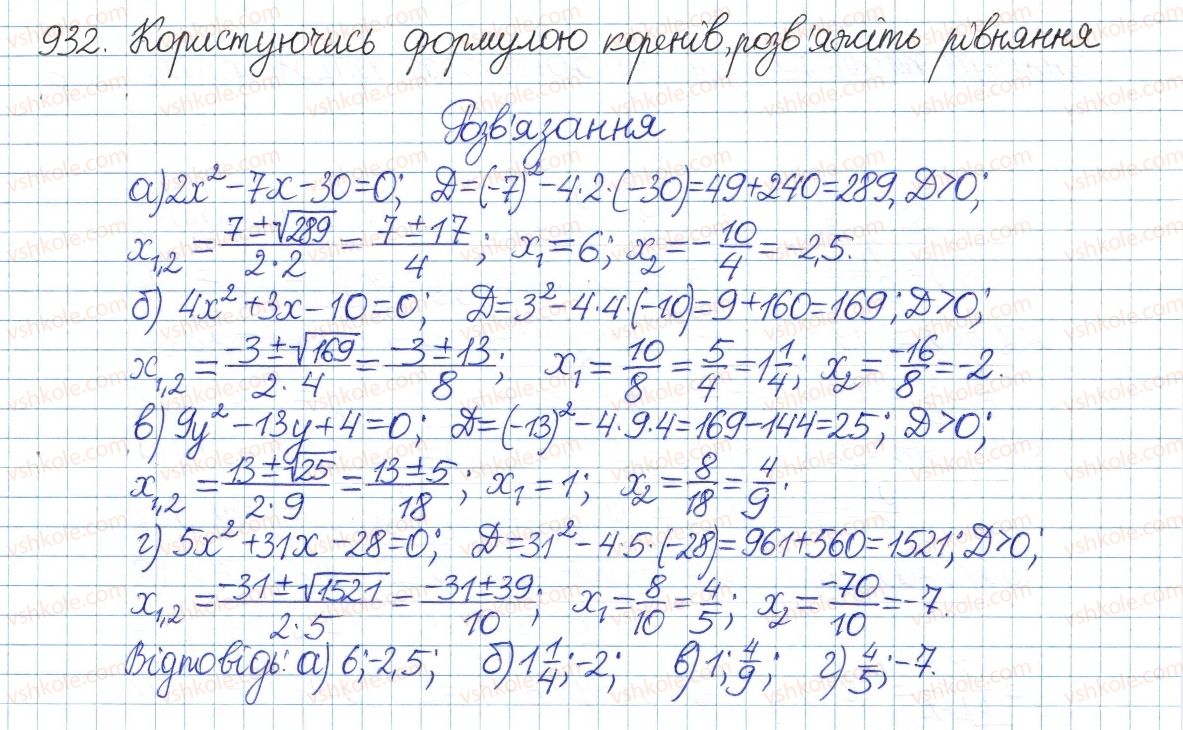 932. Користуючись формулою коренів, розв'яжіть рівняння
Розв'язання
а) 2x² - 7x - 30 = 0; D = (-7)² - 4·2·(-30) = 49 + 240 = 289, D > 0;
x₁,₂ = (7 ± √289)/(2·2) = (7 ± 17)/4; x₁ = 6; x₂ = -10/4 = -2,5.
б) 4x² + 3x - 10 = 0; D = 3² - 4·4·(-10) = 9 + 160 = 169; D > 0;
x₁,₂ = (-3 ± √169)/(2·4) = (-3 ± 13)/8; x₁ = 10/8 = 5/4 = 1 1/4; x₂ = -16/8 = -2.
в) 9y² - 13y + 4 = 0; D = (-13)² - 4·9·4 = 169 - 144 = 25; D > 0;
x₁,₂ = (13 ± √25)/(2·9) = (13 ± 5)/18; x₁ = 1; x₂ = 8/18 = 4/9.
г) 5x² + 31x - 28 = 0; D = 31² - 4·5·(-28) = 961 + 560 = 1521; D > 0;
x₁,₂ = (-31 ± √1521)/(2·5) = (-31 ± 39)/10; x₁ = 8/10 = 4/5; x₂ = -70/10 = -7.
Відповідь: а) 6; -2,5; б) 1 1/4; -2; в) 1; 4/9; г) 4/5; -7.
vshkole.com